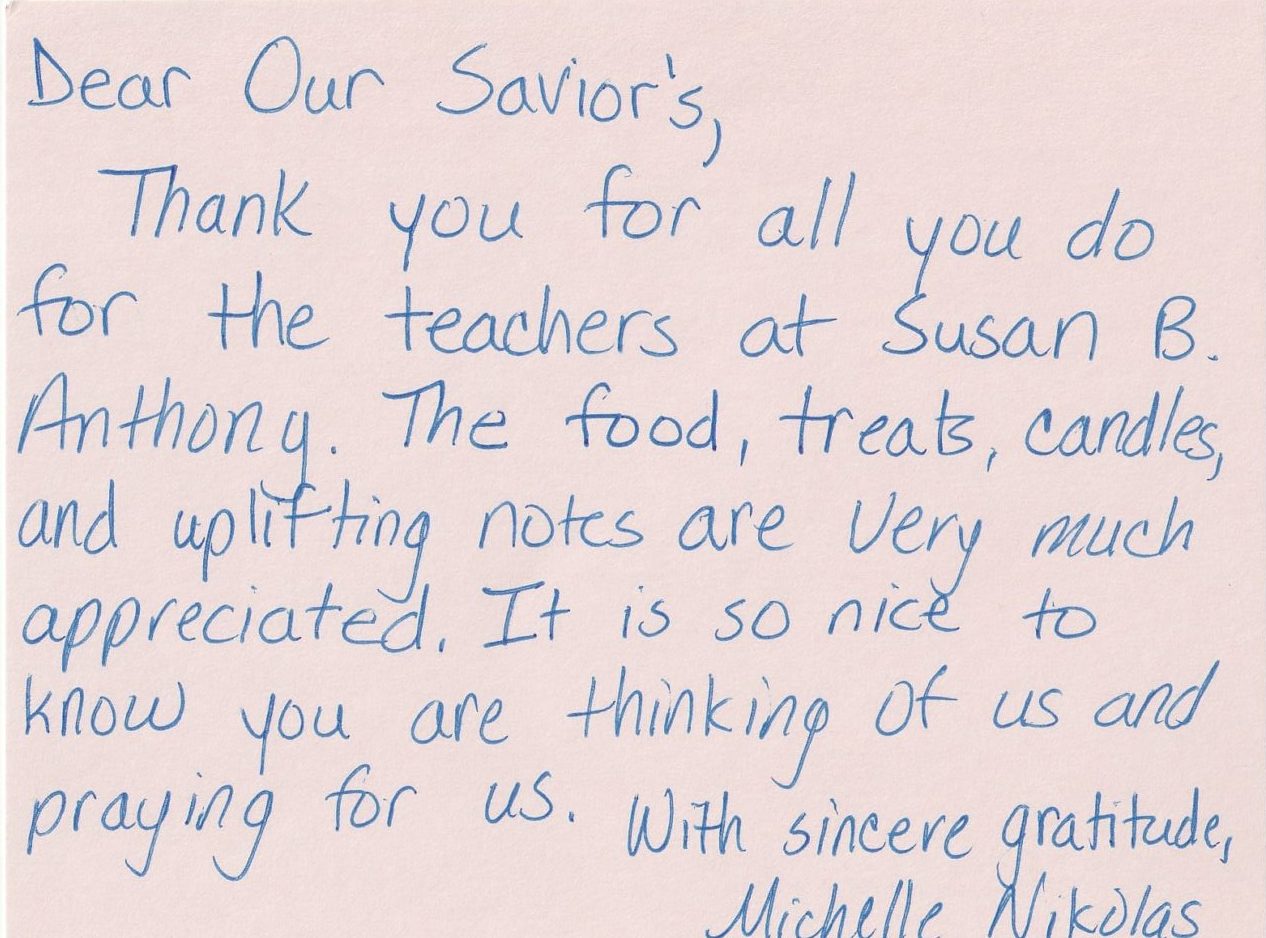 Dear Our Savior's,
Thank you for all you do
for the teachers at Susan B.
Anthony. The food, treats, candles,
and uplifting notes are very much
appreciated. It is so nice to
know you are thinking of us and
praying for us. With sincere gratitude,
Michelle Nikolas